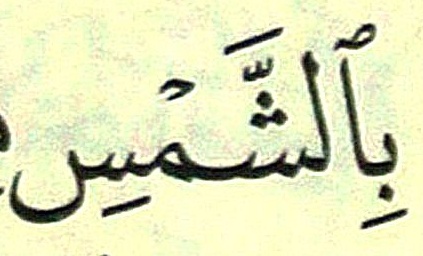 بِٱلشَّمْسِ